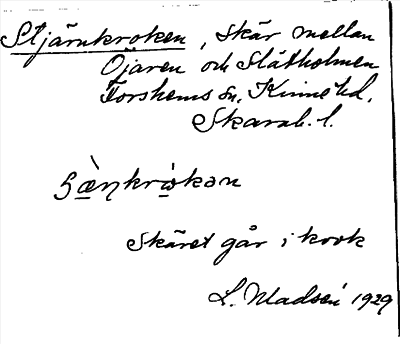 Stjärnkroken, skär mellan
Öjaren och Slätholmen
Forshems sn, Kinne hd,
Skarab. l.
Skäret går i krok
L. Madsén 1929